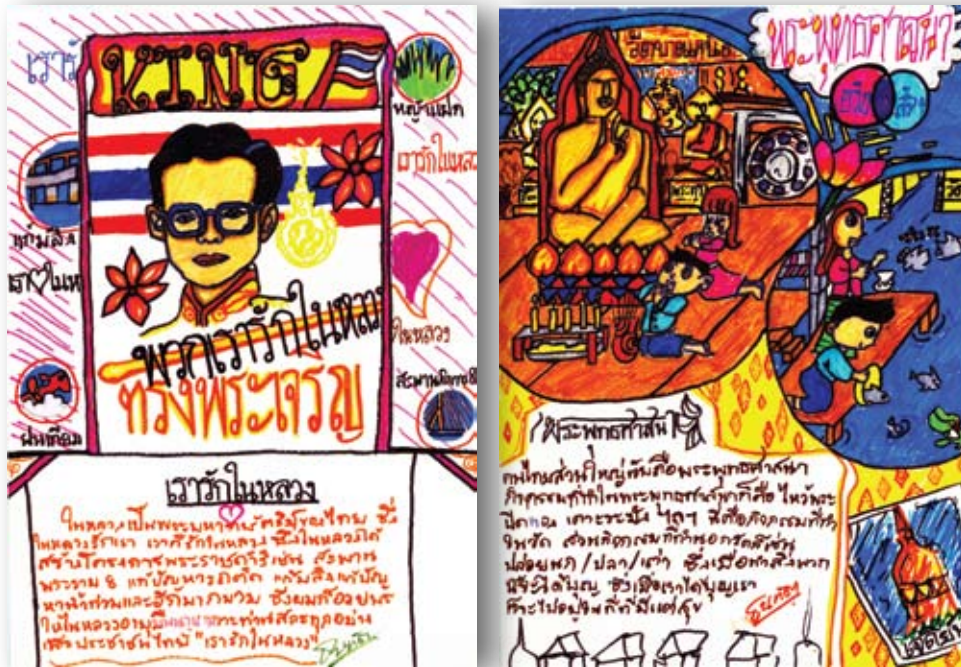 เรารั
KING
หญ้าแฝก
เรารักในหลว
แก้มลิง
เรา♡ในห
ในหลวง
พวกเรารักในหลว
ทรงพระเจริญ
สะพานพระราม 8
ฝนเทียม
เรารักในหลวง
ในหลวงเป็นพระมหากษัตริย์ของไทย ซึ่ง
ในหลวงรักเรา เราก็รักในหลวง ซึ่งในหลวงได้
สร้างโครงการพระราชดำริเช่น สะพาน
พระราม 8 แก้ปัญหารถติด แก้มลิงแก้ปัญ
หาน้ำท่วมและอีกมากมาย ซึ่งผมก็อวยพร
ให้ในหลวงอายุ
เพื่อประชาชนไทย "เรารักในหลวง"
พระพุทธศาสนา
พระพุทธศาสนา
คนไทยส่วนใหญ่นับถือพระพุทธศาสนา
กิจกรรมที่ทำในพระพุทธศาสนาก็คือ ไหว้พระ
ปิดทอง เคาะระฆัง ฯลฯ นี่คือกิจกรรมที่ทำ
ในวัด ส่วนกิจกรรมที่ทำนอกวัดก็เช่น
ปล่อยนก/ปลา/เต่า ซึ่งเมื่อทำสิ่งพวก
นี้จะได้บุญ ซึ่งเมื่อเราได้บุญเรา
ก็จะไปอยู่ในที่ที่มีแต่สุข